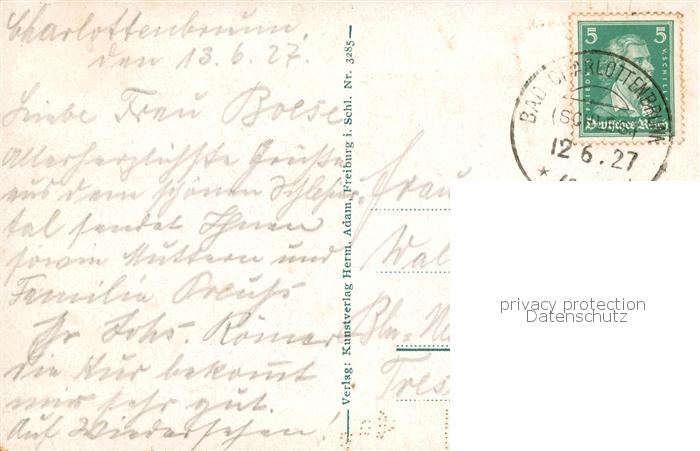 Charlottenbrunn,
den 13.6.27.
Liebe Frau Boese
Allerherzlichste Grüße
aus dem schönen Schlesier
tal sendet Ihnen
sowie Muttern und
Familie
Ihr Johs. Römer
die Kur bekomt
mir sehr gut.
Auf Wiedersehen!
Verlag: Kunstverlag Herm. Adam, Freiburg i. Schl. Nr. 3285
5 5
FRIEDR. V. SCHILLER
Deutsches Reich
BAD CHARLOTTENBRUNN
12 6.27
Frau
Wal
Bln-Ne
Tres
privacy protection
Datenschutz